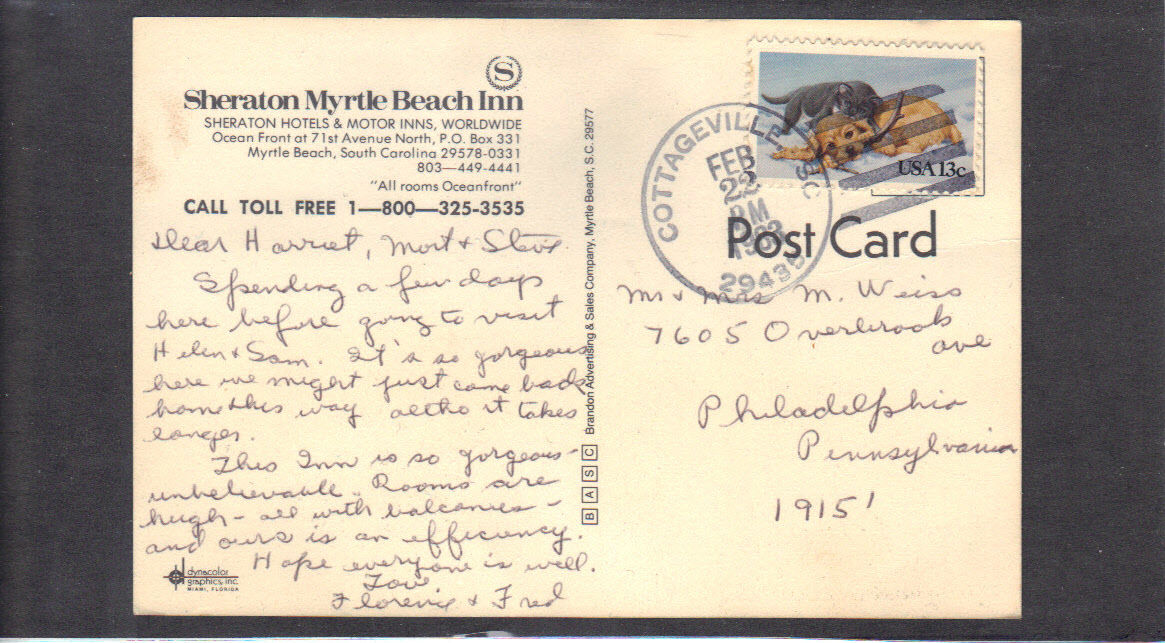 S
Sheraton Myrtle Beach Inn
SHERATON HOTELS & MOTOR INNS, WORLDWIDE
Ocean Front at 71st Avenue North, P.O. Box 331
Myrtle Beach, South Carolina 29578-0331
803—449-4441
"All rooms Oceanfront"
CALL TOLL FREE 1—800—325-3535
Dear Harriet, Mort & Steve
Spending a few days
here before going to visit
Helen & Sam. It's so gorgeous
here we might just come back
home this way altho it takes
longer.
This Inn is so gorgeous -
unbelievable. Rooms are
hugh - all with balconies -
and ours is an efficiency.
Hope everyone is well.
Love
Florence & Fred
dynacolor
graphics, inc.
MIAMI, FLORIDA
BASC Brandon Advertising & Sales Company, Myrtle Beach, S.C. 29577
USA 13c
COTTAGEVILLE, SC
FEB
22
PM
1983
29435
Post Card
Mr & Mrs M. Weiss
7605 Overbrook
Ave
Philadelphia
Pennsylvania
19151